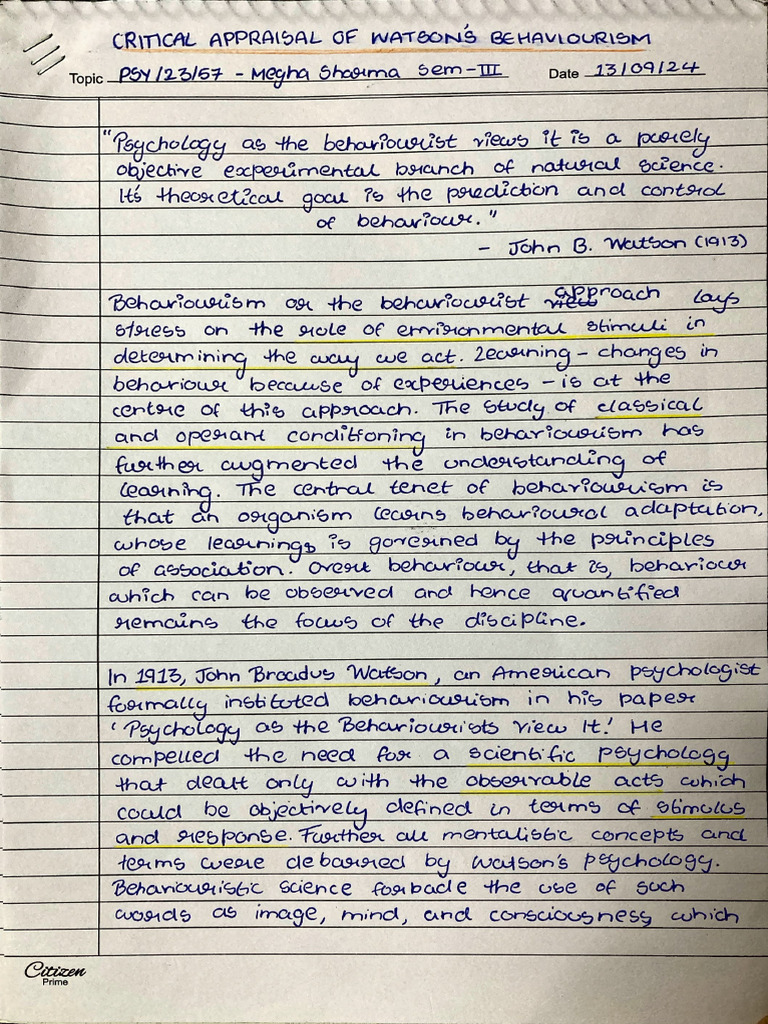 CRITICAL APPRAISAL OF WATSON'S BEHAVIOURISM
Topic PSY/23/57 - Megha Sharma Sem-III Date 13/09/24
"Psychology as the behaviourist views it is a purely
objective experimental branch of natural science.
It's theoretical goal is the prediction and control
of behaviour."
- John B. Watson (1913)
Behaviourism or the behaviourist view approach lays
stress on the role of environmental stimuli in
determining the way we act. Learning - changes in
behaviour because of experiences - is at the
centre of this approach. The study of classical
and operant conditioning in behaviourism has
further augmented the understanding of
learning. The central tenet of behaviourism is
that an organism learns behavioural adaptation,
whose learnings is governed by the principles
of association. Overt behaviour, that is, behaviour
which can be observed and hence quantified
remains the focus of the discipline.
In 1913, John Broadus Watson, an American psychologist
formally instituted behaviourism in his paper
'Psychology as the Behaviourists view It.' He
compelled the need for a scientific psychology
that dealt only with the observable acts which
could be objectively defined in terms of stimulus
and response. Further all mentalistic concepts and
terms were debarred by Watson's psychology.
Behaviouristic science forbade the use of such
words as image, mind, and consciousness which
Citizen
Prime